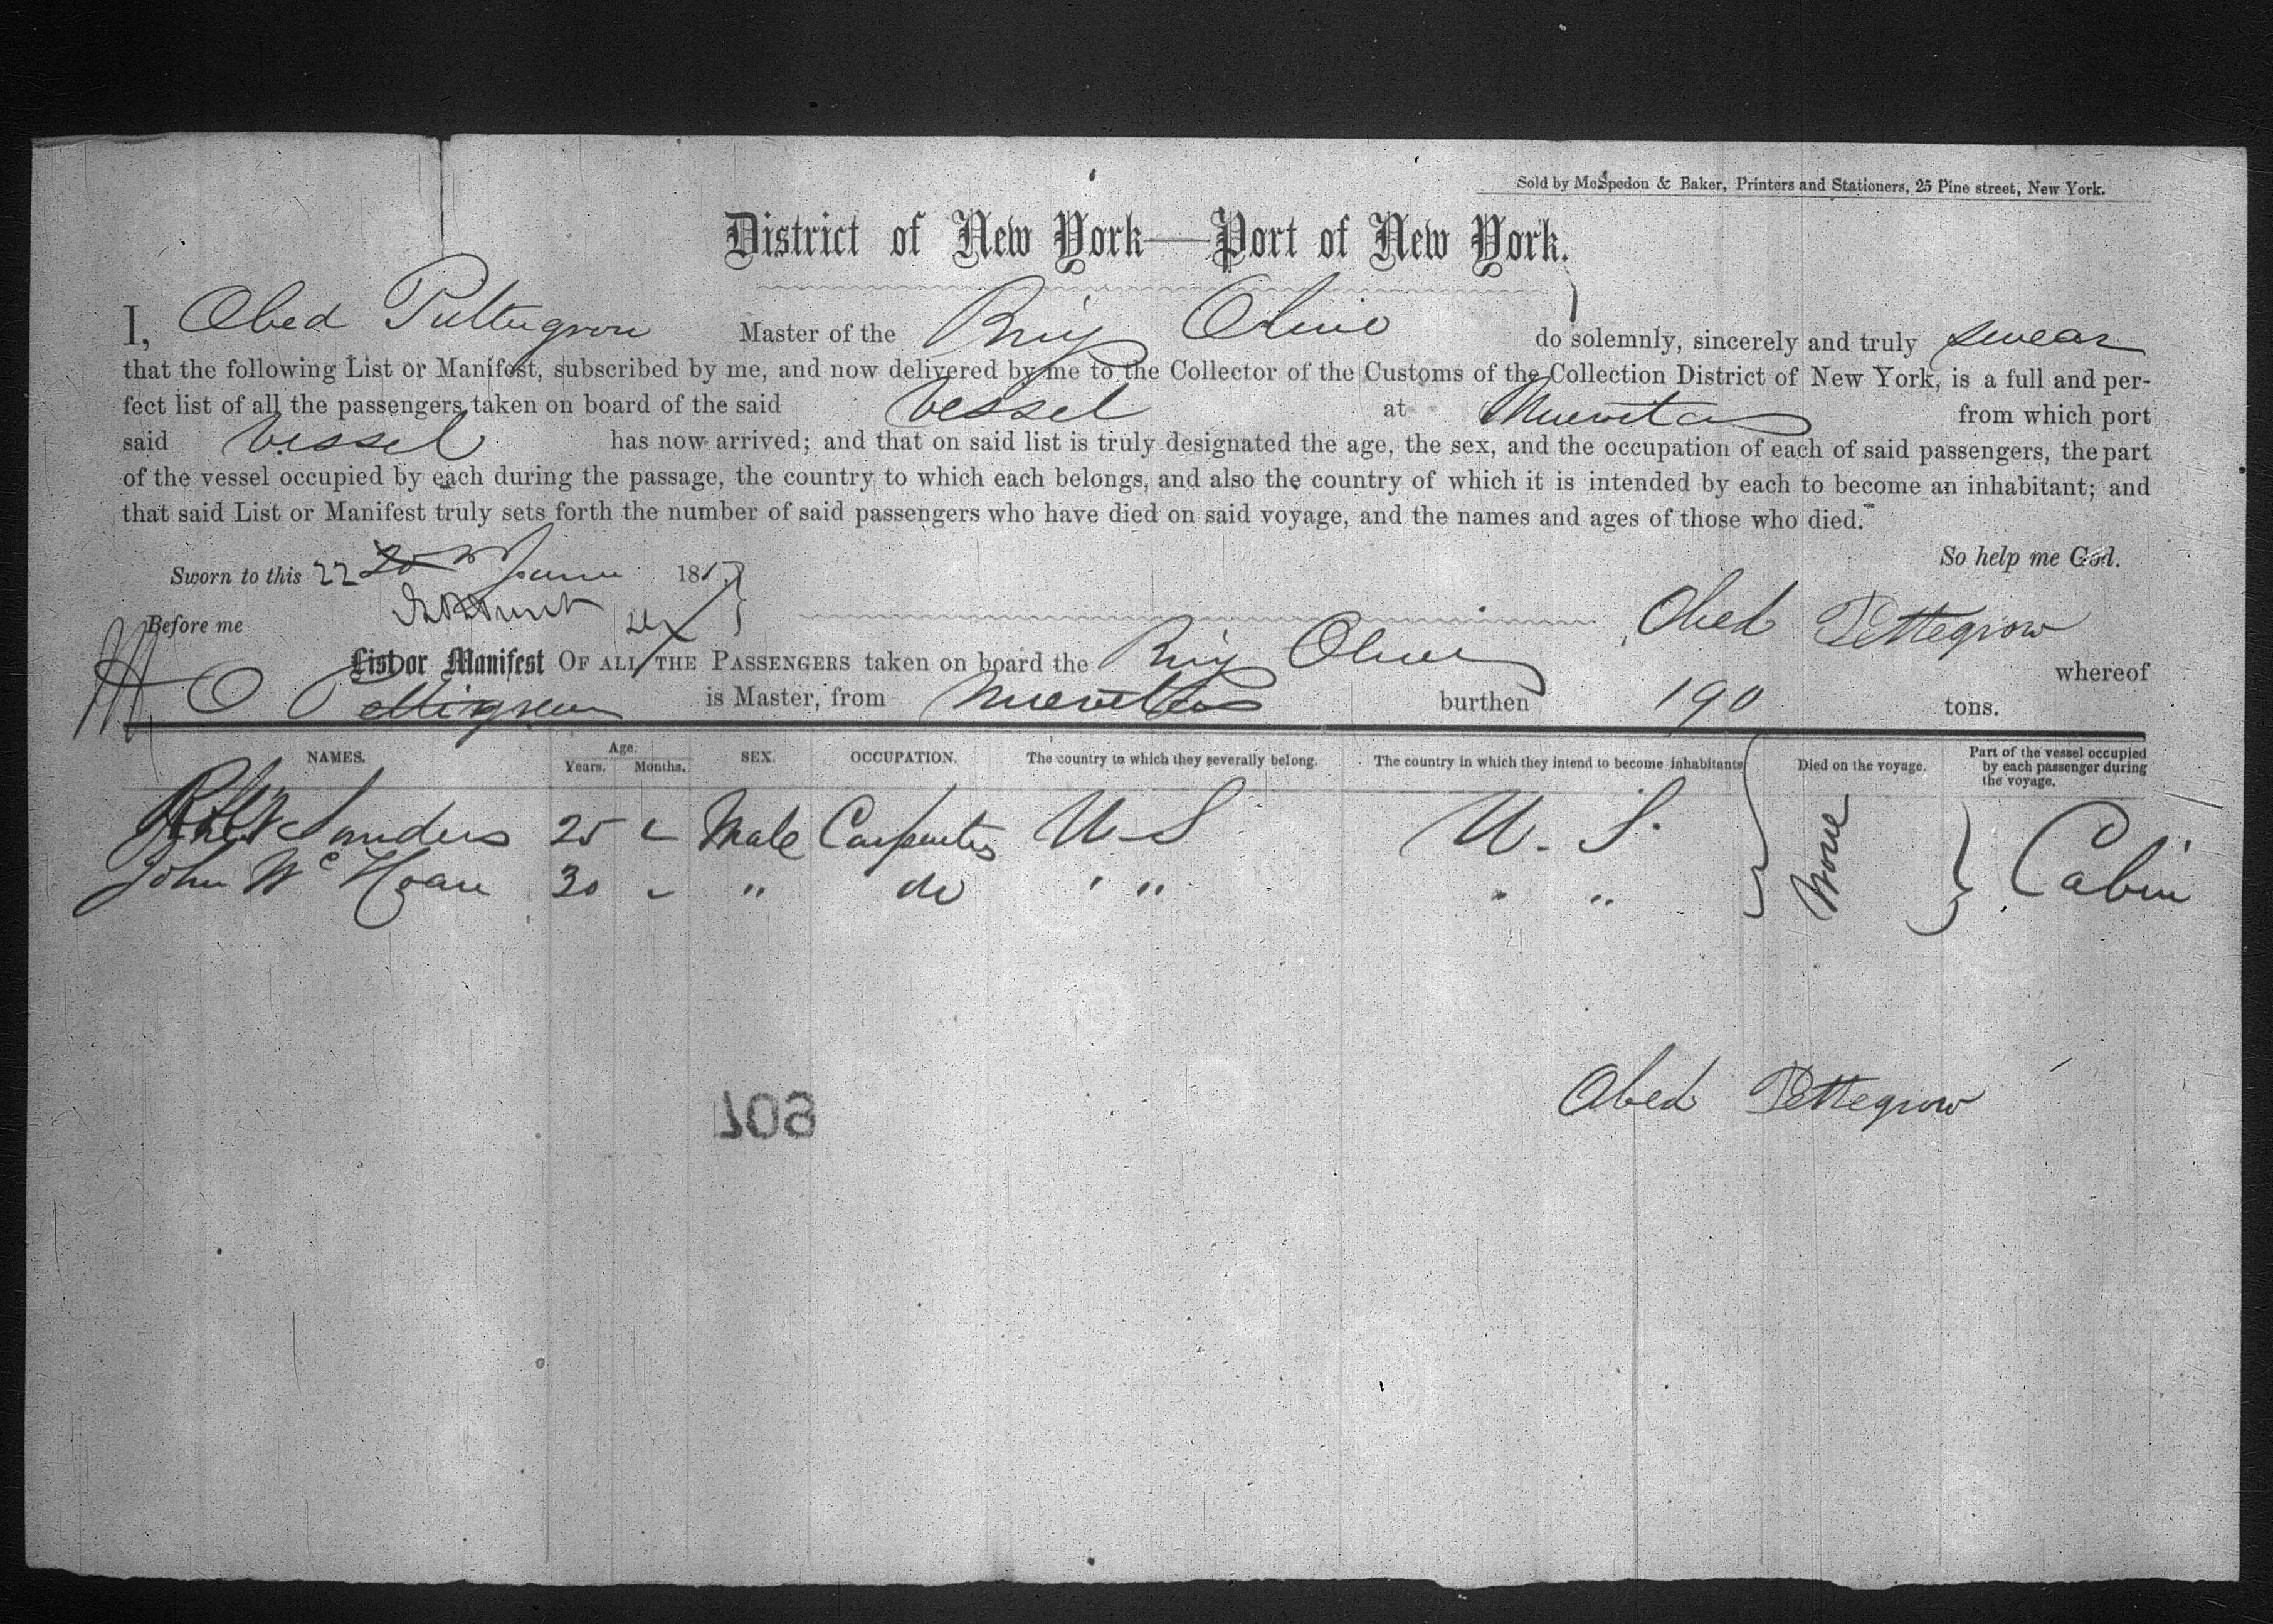 Sold by McSpedon & Baker, Printers and Stationers, 25 Pine street, New York.
District of New York—Port of New York.
I, Obed Pettegrow Master of the Brig Olive do solemnly, sincerely and truly swear
that the following List or Manifest, subscribed by me, and now delivered by me to the Collector of the Customs of the Collection District of New York, is a full and per-
fect list of all the passengers taken on board of the said Vessel at Nuevitas from which port
said Vessel has now arrived; and that on said list is truly designated the age, the sex, and the occupation of each of said passengers, the part
of the vessel occupied by each during the passage, the country to which each belongs, and also the country of which it is intended by each to become an inhabitant; and
that said List or Manifest truly sets forth the number of said passengers who have died on said voyage, and the names and ages of those who died.
So help me God.
Sworn to this 22 June 185
Before me
Obed Pettegrow
List or Manifest OF ALL THE PASSENGERS taken on board the Brig Olive whereof
O Pettigrew is Master, from Nuevitas burthen 190 tons.
NAMES. Age. Years. Months. SEX. OCCUPATION. The country to which they severally belong. The country in which they intend to become inhabitants Died on the voyage. Part of the vessel occupied by each passenger during the voyage.
Sanders 25 - Male Carpenter U-S U. S. None Cabin
John 30 - " do " " " "
Obed Pettegrow
807